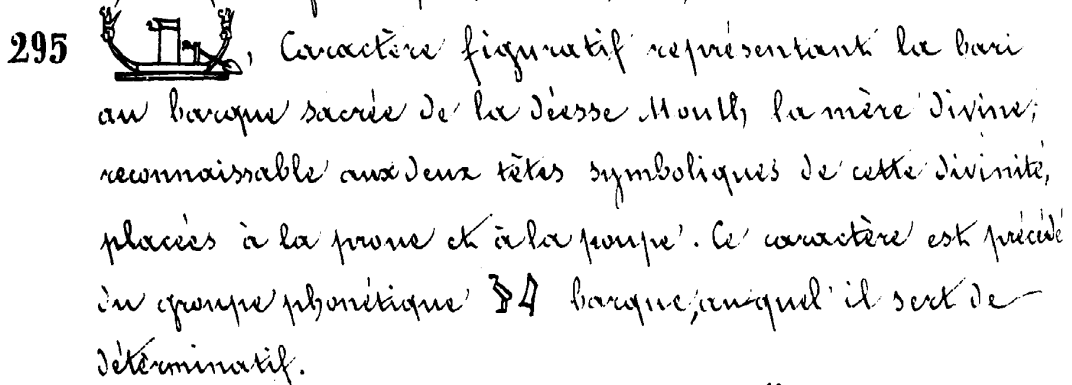 295 , Caractère figuratif représentant la bari
au barque sacrée de la déesse Mouth, la mère divine,
reconnaissable aux deux têtes symboliques de cette divinité,
placées à la proue et à la poupe. Ce caractère est précédé
du groupe phonétique barque, auquel il sert de
déterminatif.